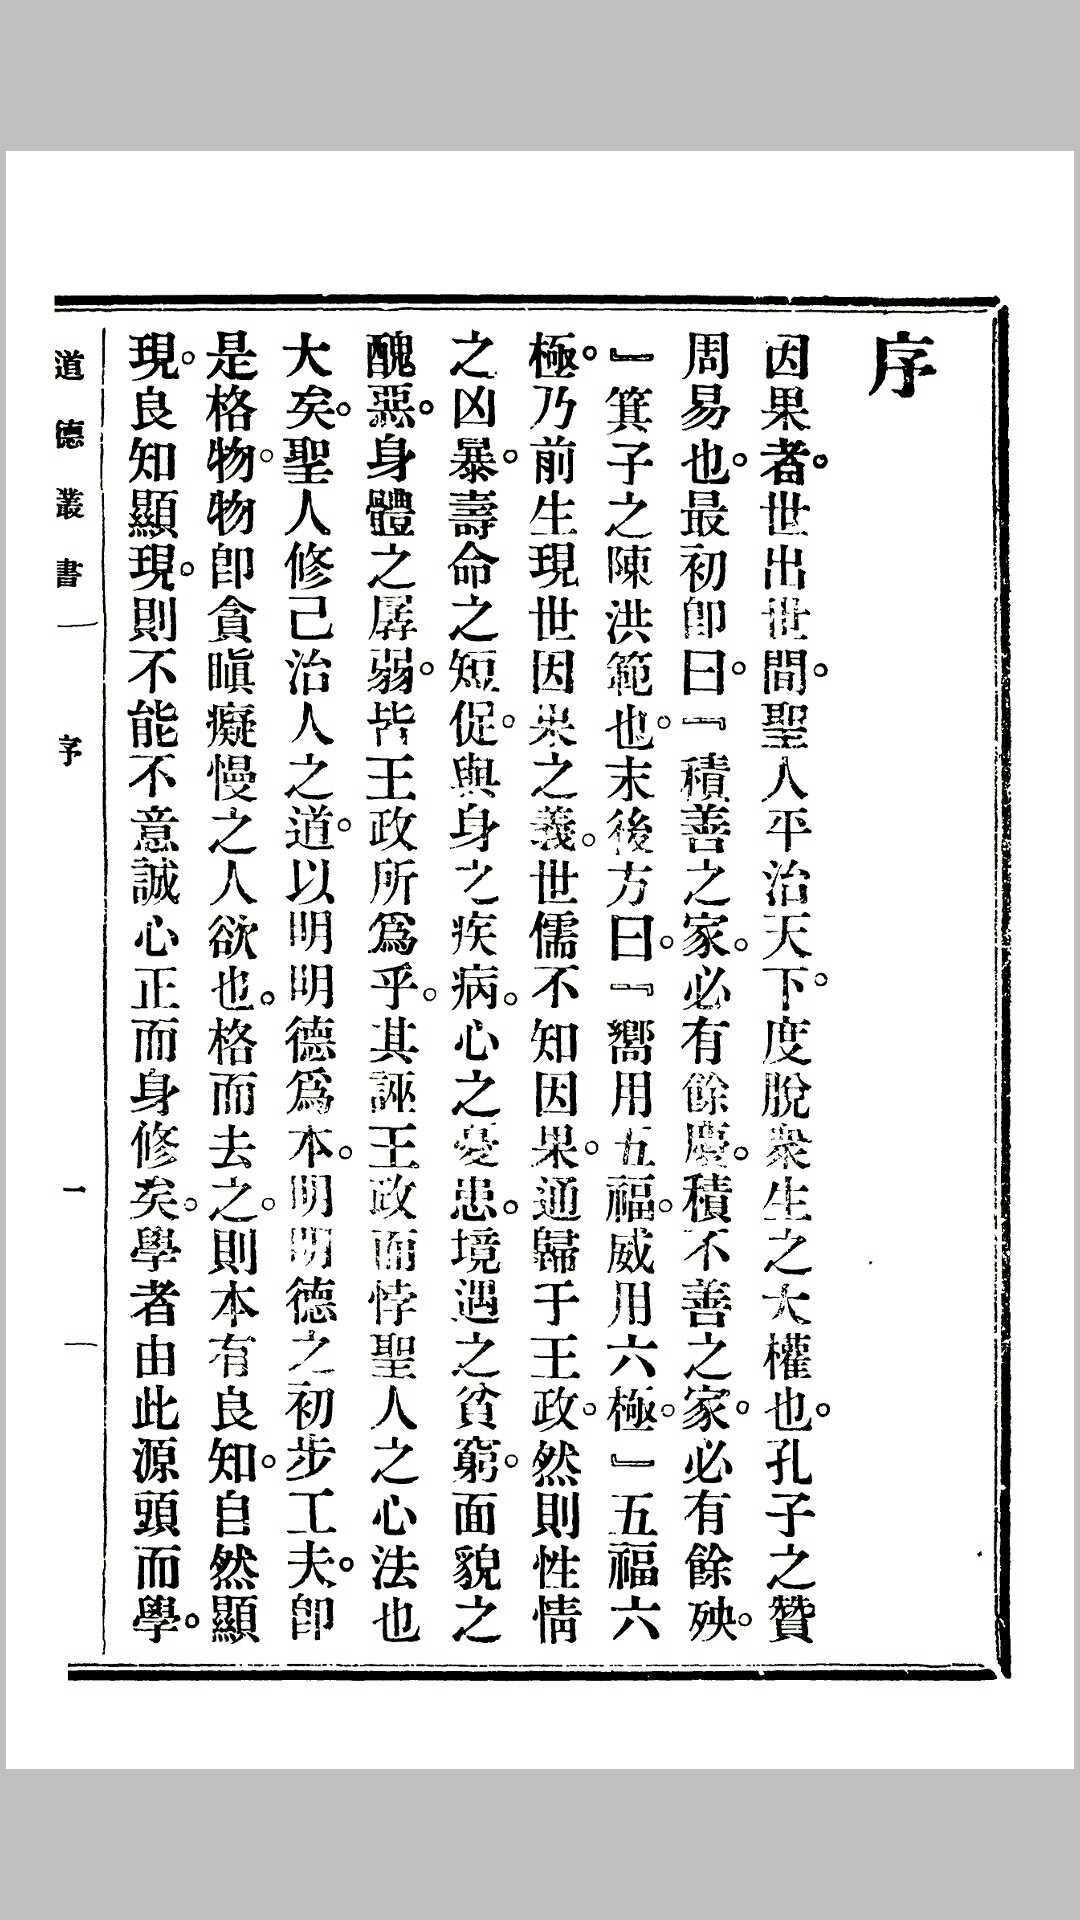 序
因果者。世出世間。聖人平治天下。度脫衆生之大權也。孔子之贊
周易也。最初卽曰。『積善之家。必有餘慶。積不善之家。必有餘殃。
』箕子之陳洪範也。末後方曰。『嚮用五福。威用六極。』五福六
極。乃前生現世因果之義。世儒不知因果。通歸于王政。然則性情
之凶暴。壽命之短促。與身之疾病。心之憂患。境遇之貧窮。面貌之
醜惡。身體之孱弱。皆王政所爲乎。其誣王政而悖聖人之心法也
大矣。聖人修己治人之道。以明明德爲本。明明德之初步工夫。卽
是格物。物卽貪瞋癡慢之人欲也。格而去之。則本有良知。自然顯
現。良知顯現。則不能不意誠心正而身修矣。學者由此源頭而學。
道德叢書 序 一